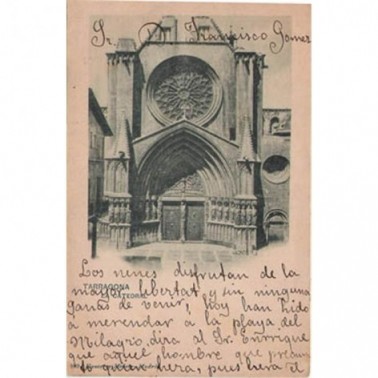 Sr. D. Francisco Gomez
TARRAGONA
CATEDRAL
Los nenes disfrutan de la
mayor libertat y sin ninguna
ganas de venir, hoy han hido
a merendar a la playa del
Milagro, dira al Sr. Enrrique
que aquel hombre que
quien hera, pues hera el